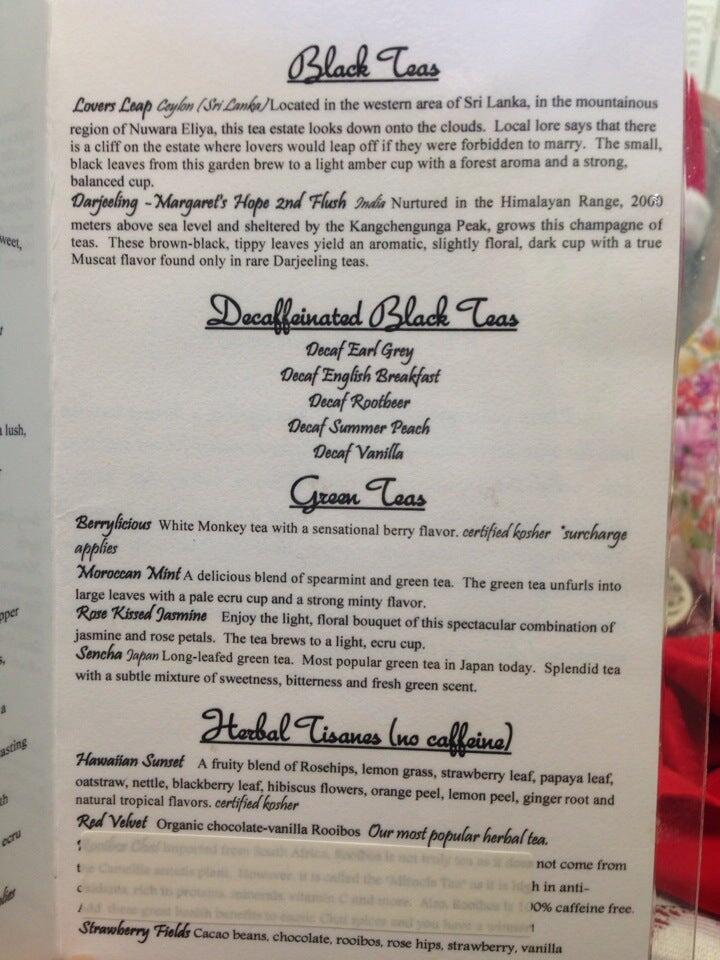 Black Teas
Lovers Leap Ceylon (Sri Lanka) Located in the western area of Sri Lanka, in the mountainous
region of Nuwara Eliya, this tea estate looks down onto the clouds. Local lore says that there
is a cliff on the estate where lovers would leap off if they were forbidden to marry. The small,
black leaves from this garden brew to a light amber cup with a forest aroma and a strong,
balanced cup.
Darjeeling ~Margaret's Hope 2nd Flush India Nurtured in the Himalayan Range, 2000
meters above sea level and sheltered by the Kangchengunga Peak, grows this champagne of
teas. These brown-black, tippy leaves yield an aromatic, slightly floral, dark cup with a true
Muscat flavor found only in rare Darjeeling teas.
Decaffeinated Black Teas
Decaf Earl Grey
Decaf English Breakfast
Decaf Rootbeer
Decaf Summer Peach
Decaf Vanilla
Green Teas
Berrylicious White Monkey tea with a sensational berry flavor. certified kosher *surcharge
applies
Moroccan Mint A delicious blend of spearmint and green tea. The green tea unfurls into
large leaves with a pale ecru cup and a strong minty flavor.
Rose Kissed Jasmine Enjoy the light, floral bouquet of this spectacular combination of
jasmine and rose petals. The tea brews to a light, ecru cup.
Sencha Japan Long-leafed green tea. Most popular green tea in Japan today. Splendid tea
with a subtle mixture of sweetness, bitterness and fresh green scent.
Herbal Tisanes (no caffeine)
Hawaiian Sunset A fruity blend of Rosehips, lemon grass, strawberry leaf, papaya leaf,
oatstraw, nettle, blackberry leaf, hibiscus flowers, orange peel, lemon peel, ginger root and
natural tropical flavors. certified kosher
Red Velvet Organic chocolate-vanilla Rooibos Our most popular herbal tea.
imported from South Africa, Rooibos is not truly tea as it does not come from
the Camellia sensis plant. However, it is called the "Miracle Tea" as it is high in anti-
rich in proteins, minerals, vitamin C and more. Also, Rooibos is 100% caffeine free.
Add these great health benefits to exotic Chai spices and you have a winner!
Strawberry Fields Cacao beans, chocolate, rooibos, rose hips, strawberry, vanilla